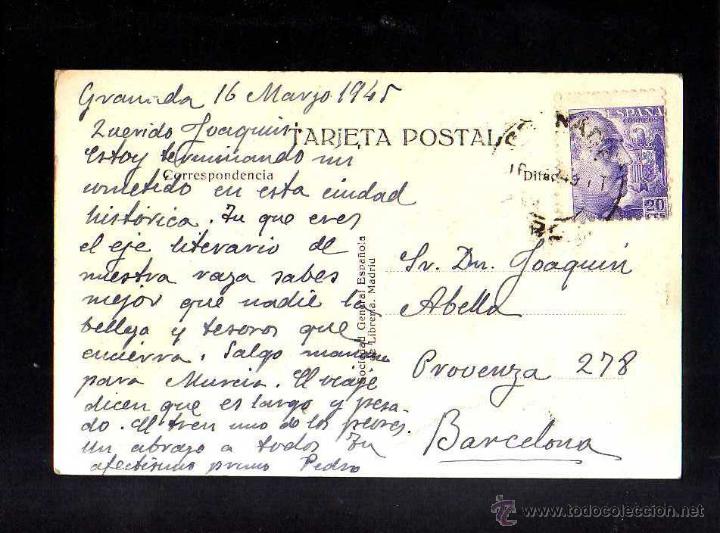 Granada 16 Marzo 1945
Querido Joaquin:
TARJETA POSTAL
Estoy terminando mi
Correspondencia
cometido en esta ciudad
histórica. Tu que eres
el eje literario de
nuestra raza sabes
mejor que nadie la
belleza y tesoros que
encierra. Salgo mañana
para Murcia. El viaje
dicen que es largo y pesa-
do. El tren uno de los peores.
Un abrazo a todos Tu
afectísimo primo Pedro
Sociedad General Española
de Librería. Madrid
ESPAÑA
CORREOS
20
CTS
Sr. Dn. Joaquin
Abella
Provenza 278
Barcelona
www.todocoleccion.net